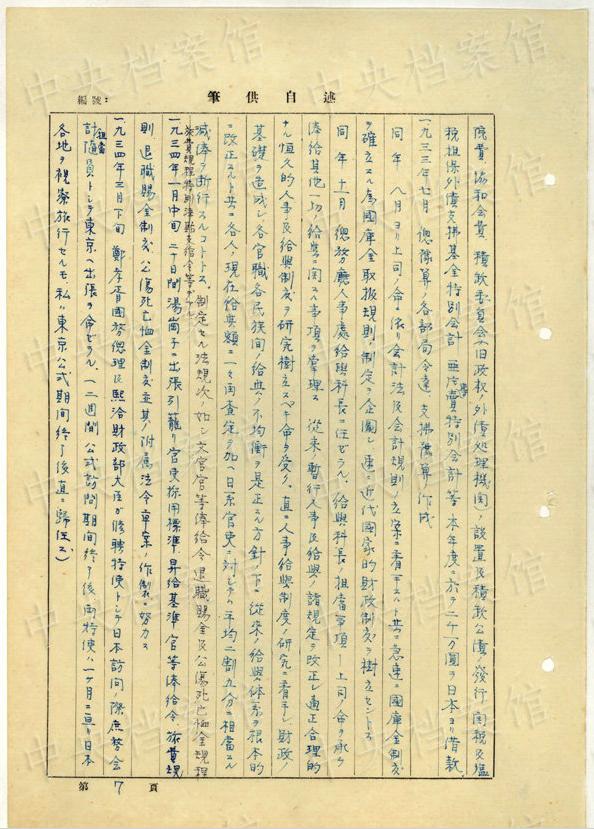 編號：
筆供自述
院費、協和会費、積欠委員会(旧政权ノ外債処理機関)ノ設置及積欠公債ノ発行、関税及塩
税担保外債支拂基金特別会計 亜片専賣特別会計等 本年度ニ於テ二千万圓ヲ日本ヨリ借款
一九三三年七月 總豫算ノ各部局令達、支拂豫算ノ作成
同年八月ヨリ上司ノ命ニ依リ会計法及会計規則ノ立案ニ着手スルト共ニ急速ニ國庫金制度
ヲ確立スル為國庫金取扱規則ノ制定ヲ企圖シ 速ニ近代國家的財政制度ヲ樹立セントス
同年十一月 總務廳人事處給與科長ニ任ゼラル 給與科長ノ担當事項ー上司ノ命ヲ承ケ
俸給其他一切ノ給與ニ関スル事項ヲ掌理ス 従来ノ暫行人事及給與ノ諸規定ヲ改正シ適正合理的
ナル恒久的人事及給與制度ヲ研究樹立スベキ命ヲ受ク、直ニ人事給與制度ノ研究ニ着手シ財政ノ
基礎ヲ造成シ各官職各民族間ノ給與ノ不均衡ヲ是正スル方針ノ下ニ 従来ノ給與体系ヲ根本的
ニ改正スルト共ニ各人ノ現在給與額ニ一々再査定ヲ加ヘ日系官吏ニ対シテハ平均二割五分ニ相當スル
減俸ヲ断行スルコトトス、制定セル法規次ノ如シ 文官官等俸給令 退職賜金及公傷死亡恤金規程
旅費規程 特別津貼支給令等
一九三四年一月中旬 二十日間湯崗子ニ出張引籠リ官吏採用標準、昇給基準官等俸給令 旅費規
則 退職賜金制度 公傷死亡恤金制度 並其ノ附属法令草案ノ作制ニ努力ス
一九三四年三月下旬 鄭孝胥國務總理及 熙洽財政部大臣ガ修聘特使トシテ日本訪問ノ際庶務会
計担當随員トシテ東京ヘ出張ヲ命ゼラル、(二週間公式訪問期間終了後両特使ハ一ケ月ニ亘リ日本
各地ヲ視察旅行セルモ私ハ東京公式期間終了後直ニ歸任ス)
第 7 頁